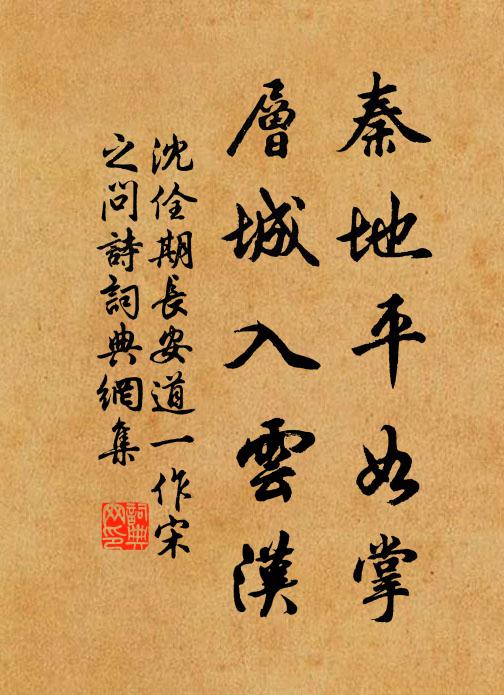 秦地平如掌
層城入雲漢
沈佺期長安道一作宋
之問詩詞典網集
詞典
网印